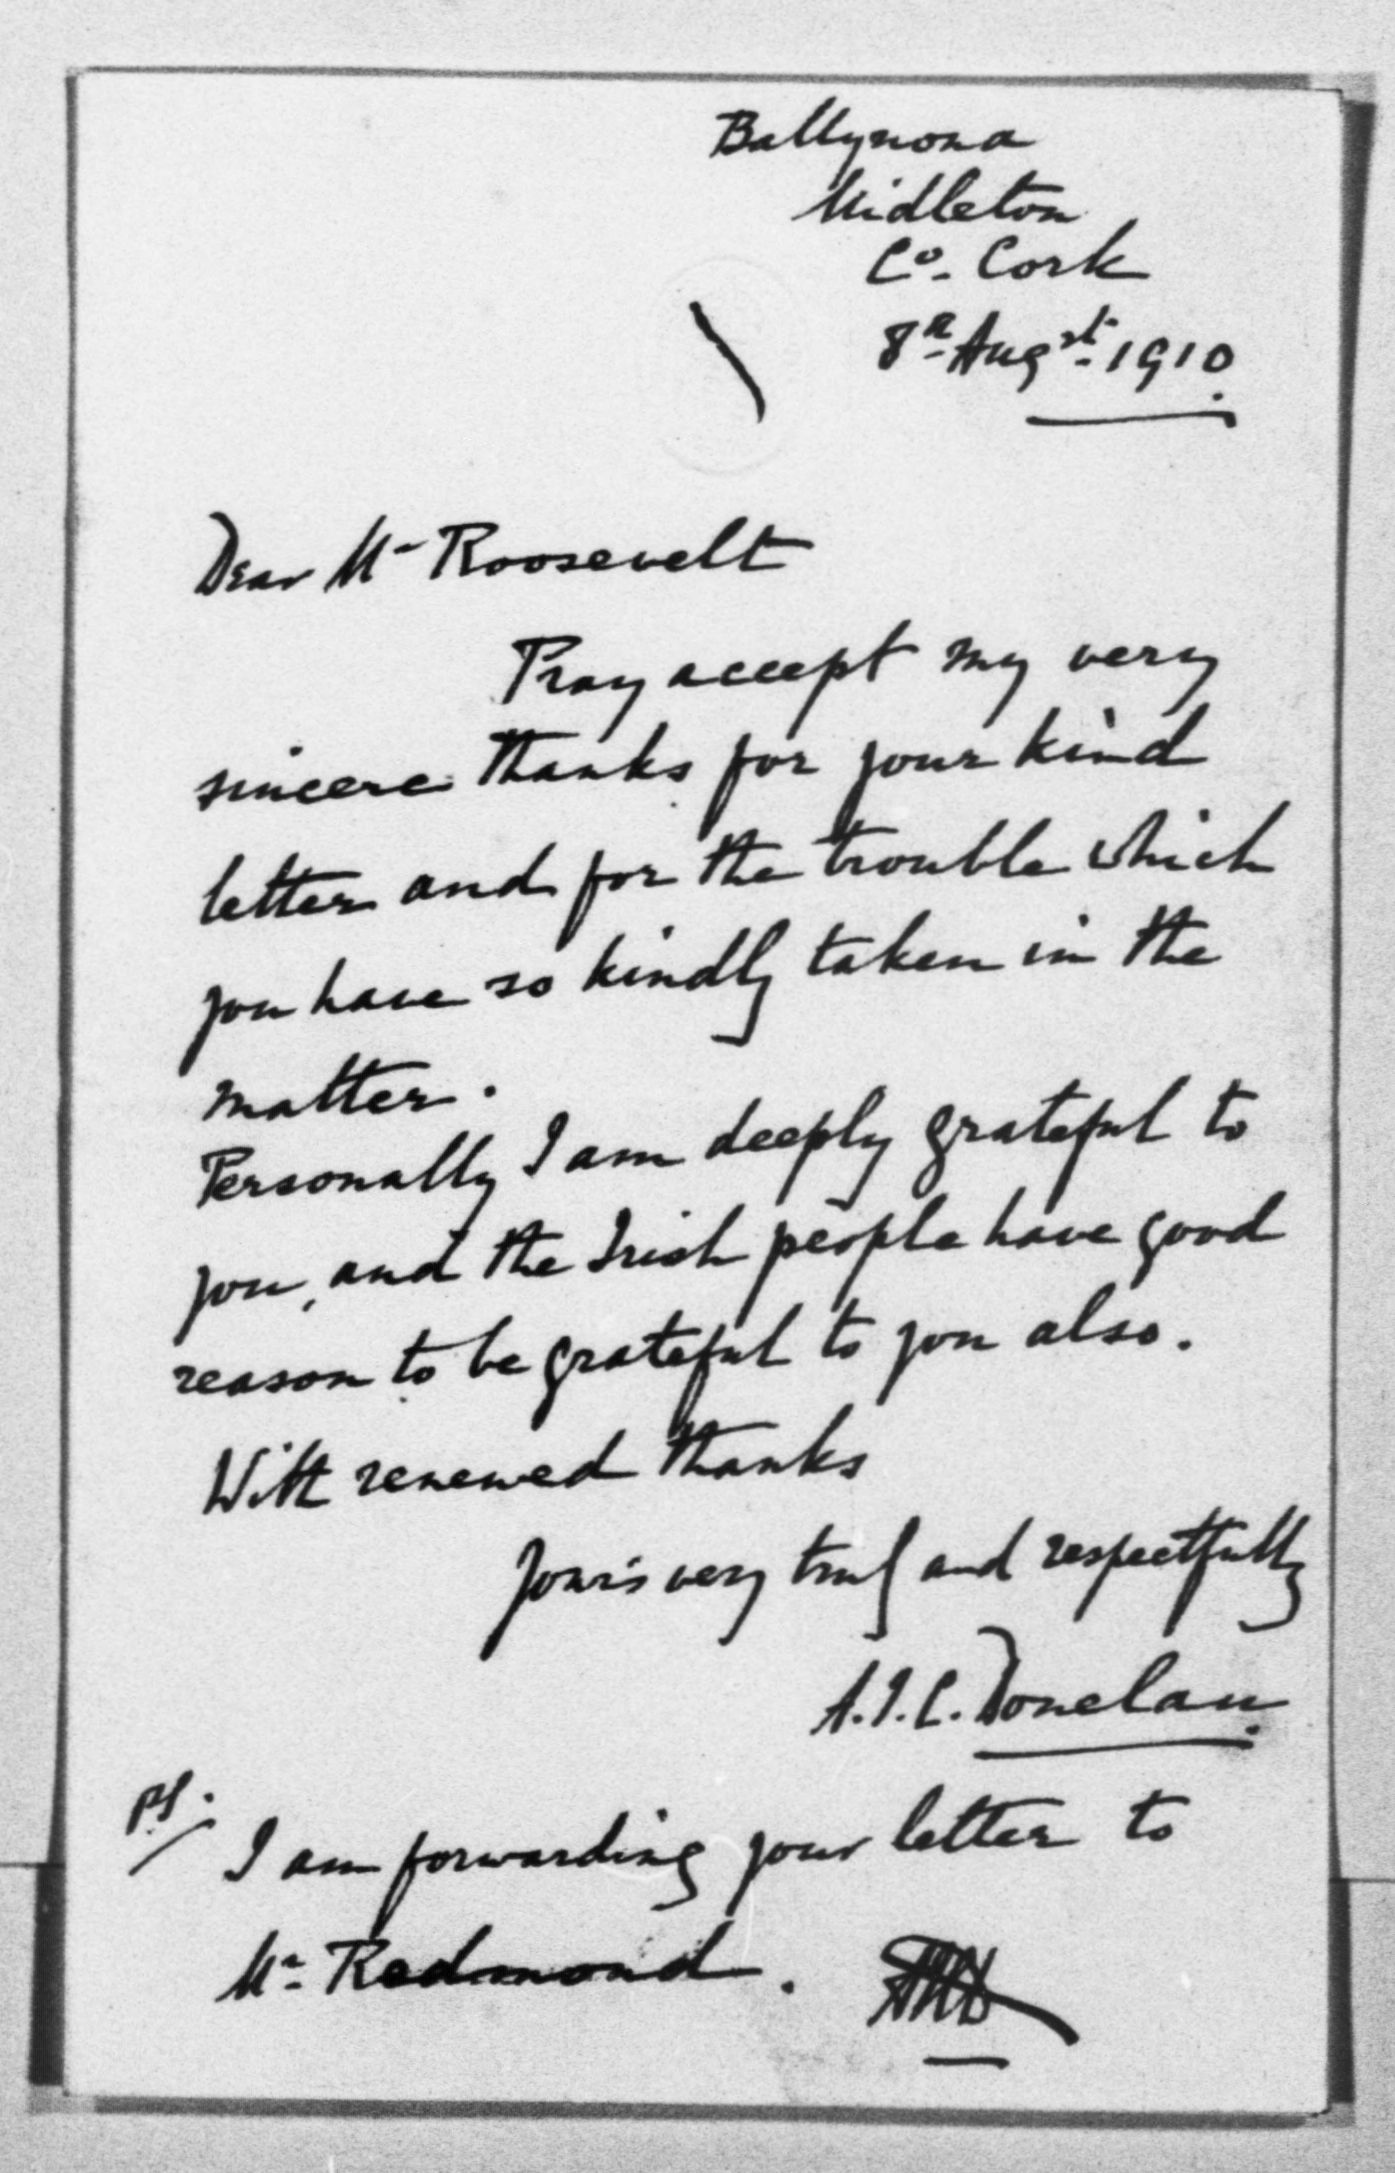 Ballynona
Midleton
Co. Cork
8th Augst. 1910.
Dear Mr Roosevelt
Pray accept my very
sincere thanks for your kind
letter and for the trouble which
you have so kindly taken in the
matter.
Personally I am deeply grateful to
you, and the Irish people have good
reason to be grateful to you also.
With renewed thanks
Yours very truly and respectfully
A.J.C. Donelan
PS.
I am forwarding your letter to
Mr. Redmond.